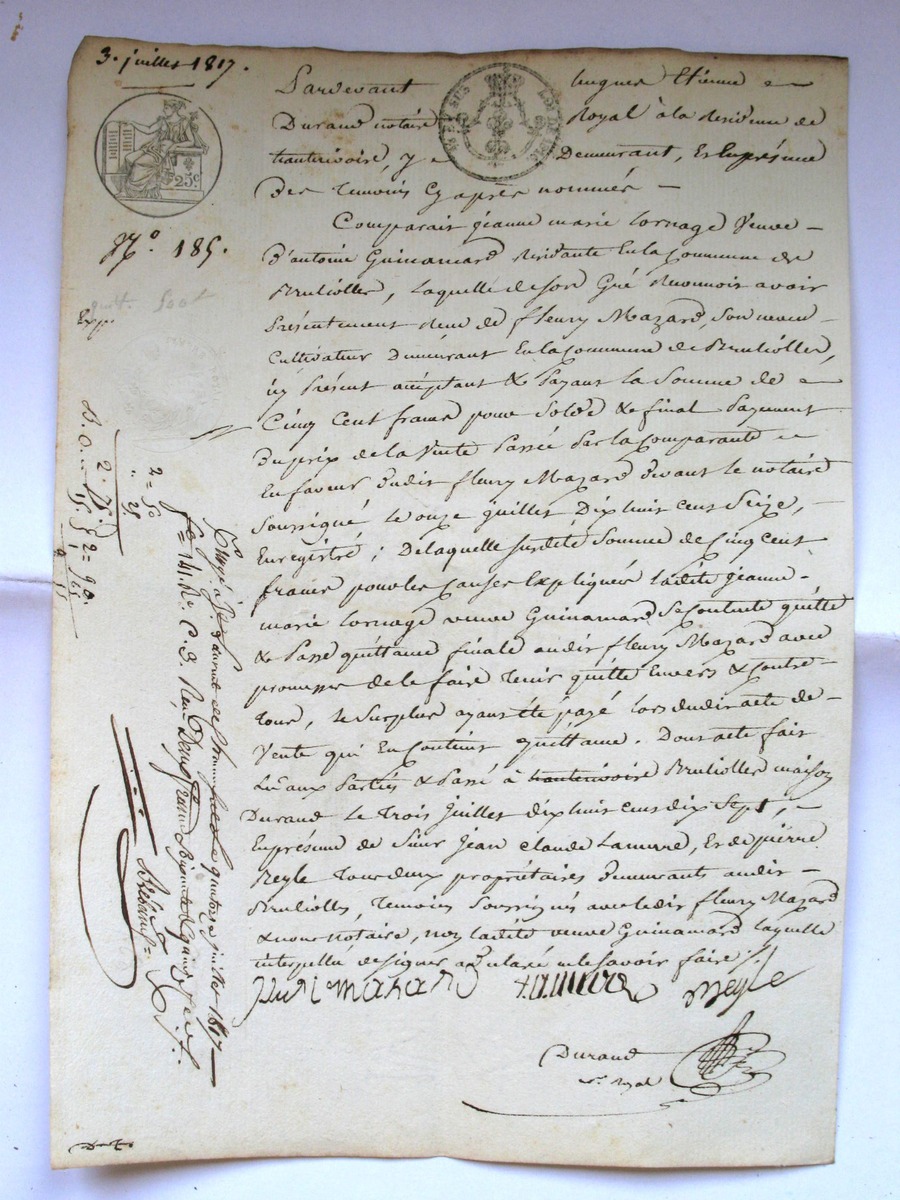 3. juillet 1817.
Pardevant hugues Etienne
Durand notaire Royal à la Residence de
hauterivoire, y Demeurant, En la présence
Des temoins Cyaprès nommés
25c
Comparait jeanne marie Lornage Veuve
D'antoine Guinamard Residante En la Commune de
Bruliolles, Laquelle de son Gré Reconnoit avoir
Présentement Recu de fleury Mazard, Son neveu
Cultivateur Demeurant En la Commune de Brulliolles,
icy Présent acceptant & Payant La Somme de
Cinq Cent francs pour Solde & final Payement
Du prix de la Vente Passée Par la Comparante
En faveur Dudit fleury Mazard Devant le notaire
Soussigné Le onze juillet Dix huit Cent Seize,
Enregistré ; De laquelle Susdite Somme de Cinq Cent
francs pour les Causes Expliquées Ladite jeanne
marie Lornage veuve Guinamard Se Contente quitte
& Passe quittance finale audit fleury Mazard avec
promesse de le faire tenir quitte Envers & Contre
tous, le Surplus ayant Eté payé Lors dudit acte de
Vente qui En Contient quittance. Dont acte fait
Lu aux Parties & Passé à hauterivoire Brulliolles maison
Durand Le trois juillet dix huit cent dix Sept,
En présence de Sieur jean Claude Lamure, Et de pierre
Reyle tous deux propriétaires Demeurants audit
Brulliolles, temoins Soussignés avec ledit fleury Mazard
& nous notaire, non ladite veuve Guinamard laquelle
interpellée de signer a déclaré ne le Savoir faire
fleuri mazard Lamure Reyle
Durand
nre royal
N.° 185.
Exp.
2 = 50
25
2 = 90.
juillet 1817